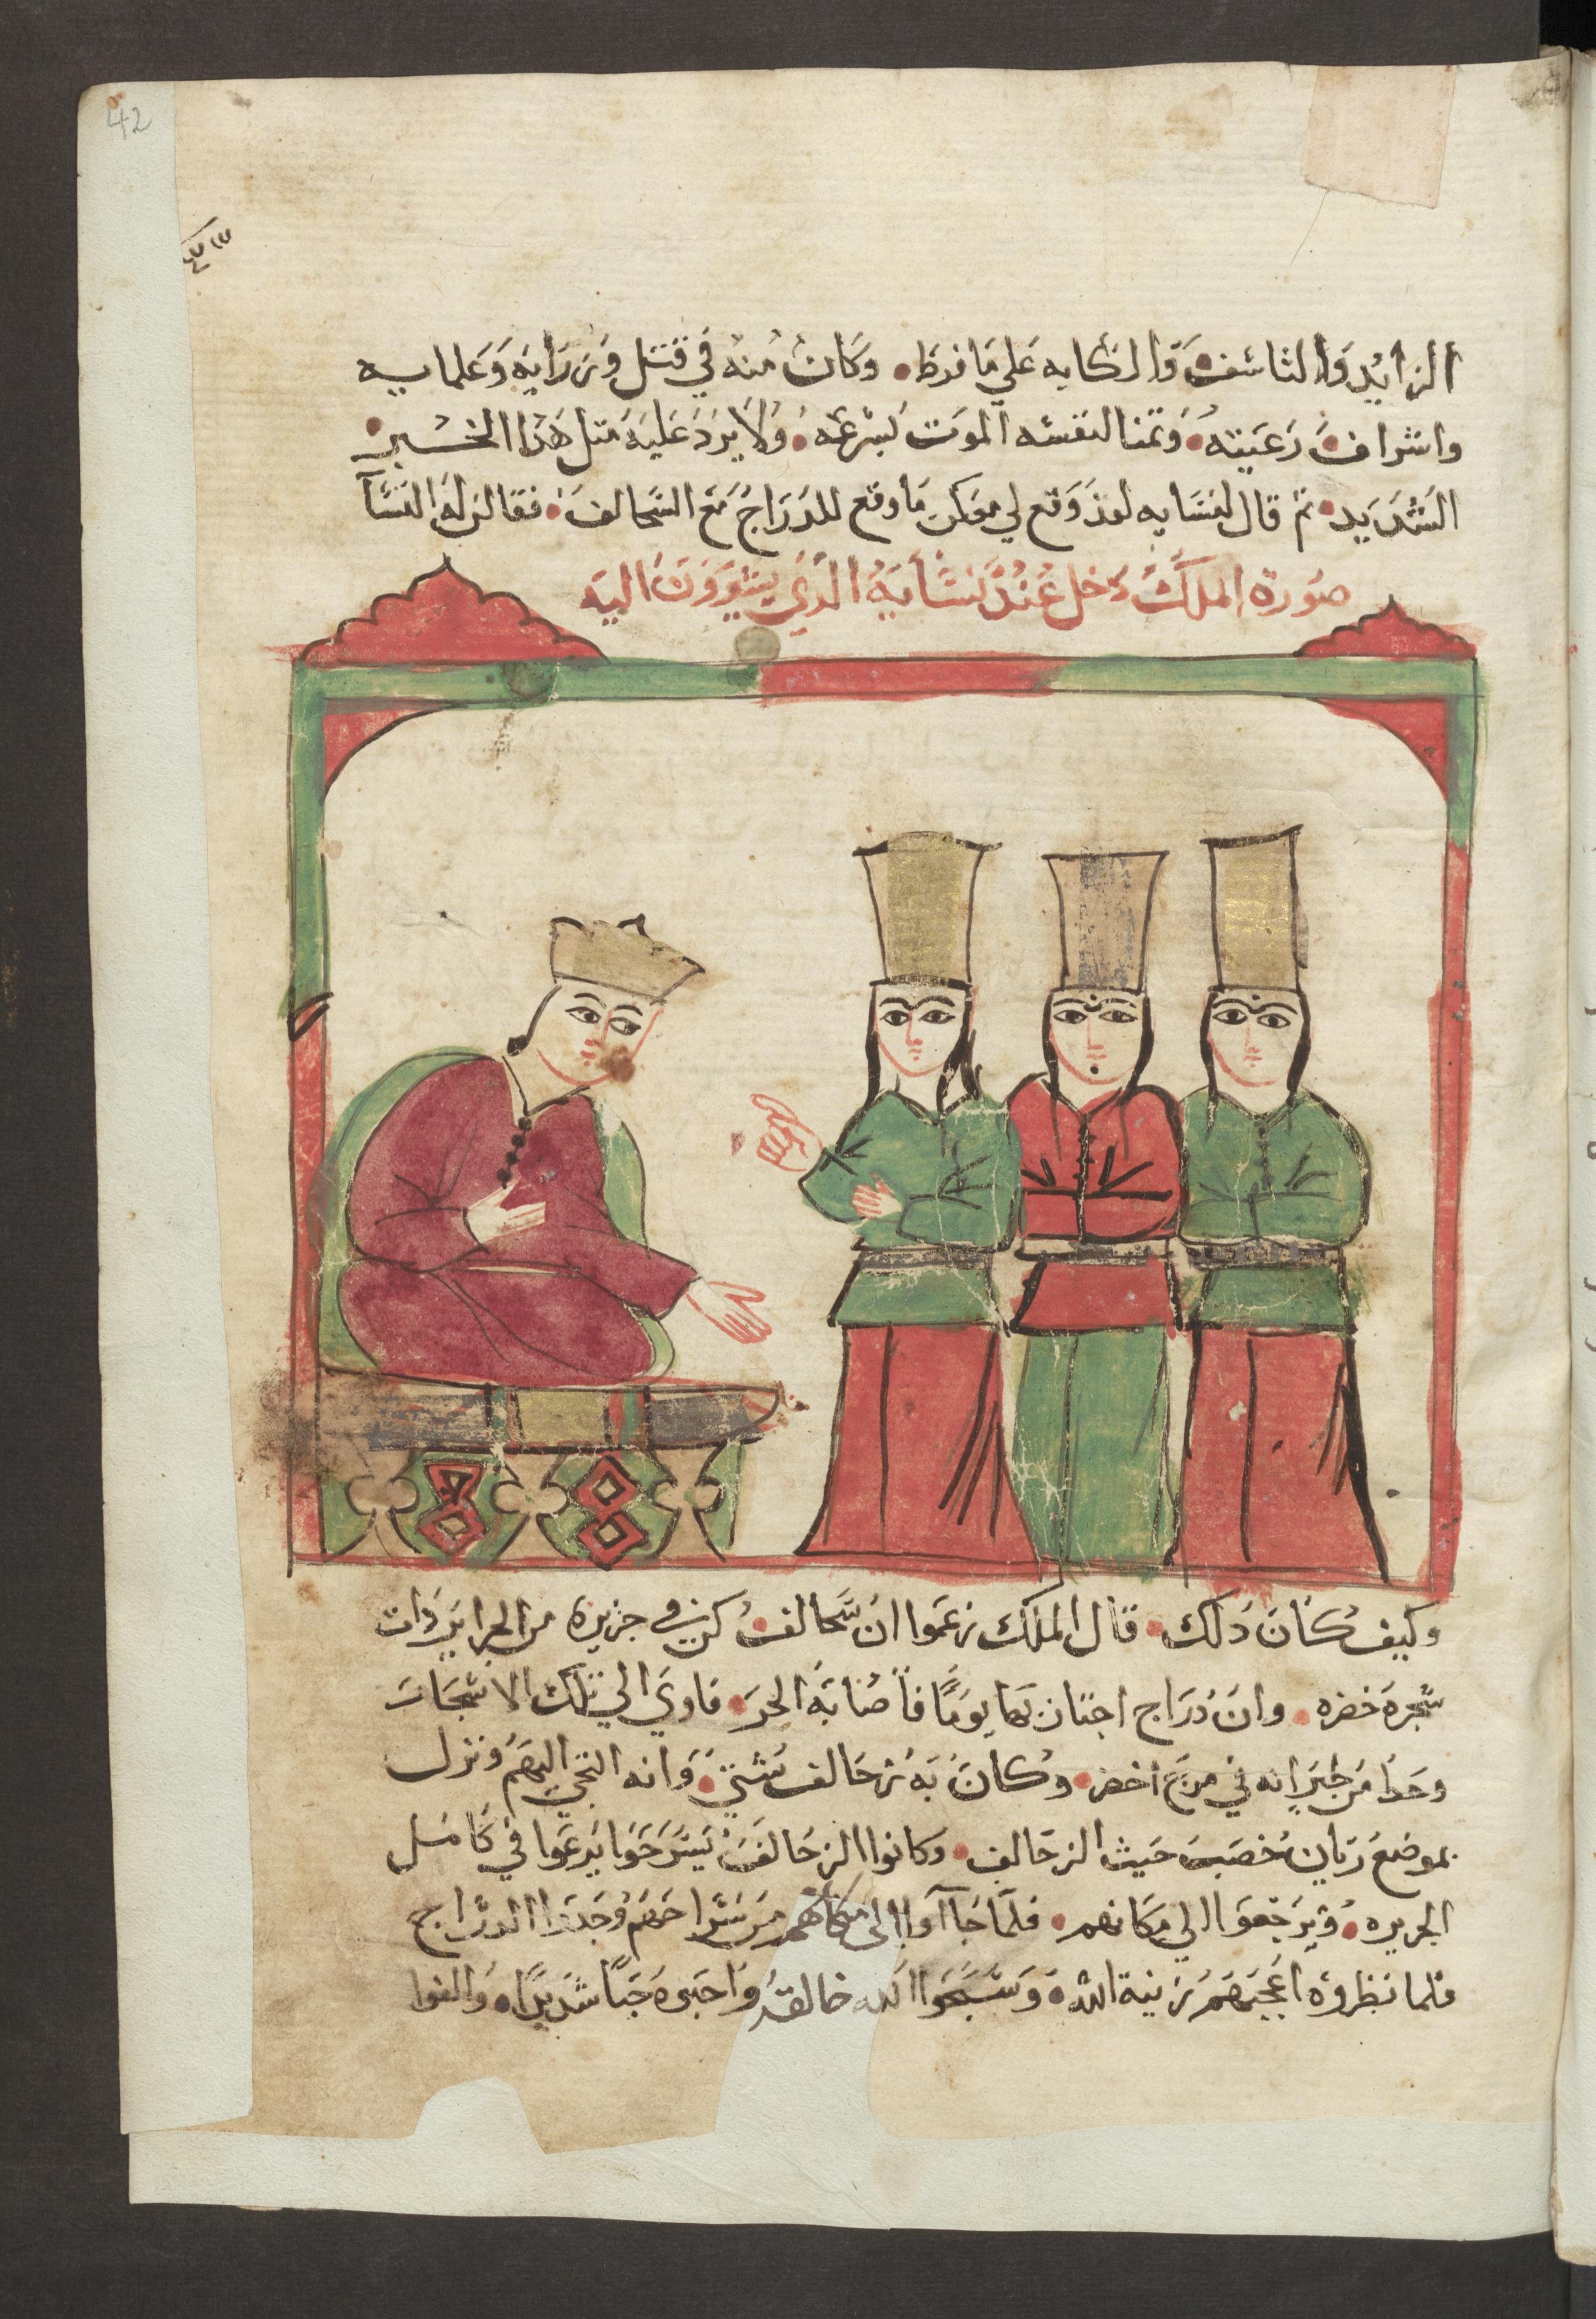 42
الزايد والتاسف والكابه علي ما فرط • وكان منه في قتل وزرايه وعلمايه
واشراف رعيته • وتمنا لنفسه الموت بسرعه • ولا يرد عليه متل هذا الخسر
الشديد • تم قال لنسايه لقد وقع لي معكن ما وقع للدراج مع السحالف • فقالن له النسا
صورة الملك دخل عند نسايه الذي يشورون اليه
وكيف كان دلك • قال الملك زعموا ان سحالف كن في جزيره من الجزاير دات
شجره خضره • وان دراج اجتاز بها يوما فاصابه الحر • فاوي الي تلك الاشجات
وحدا من جيرانه في مرج اخضر • وكان به زحالف شتي • وانه التجي اليهم ونزل
بموضع ريان خصب حيث الزحالف • وكانوا الزحالف يتسرحوا يرعوا في كامل
الجزيره • ويرجعوا الي مكانهم • فلما جا آوا الى مكانهم من سراحهم وجدوا الدراج
فلما نظروه اعجبهم زينة الله • وسبحوا لله خالقه واحبوه حبا شديدا • والفوا